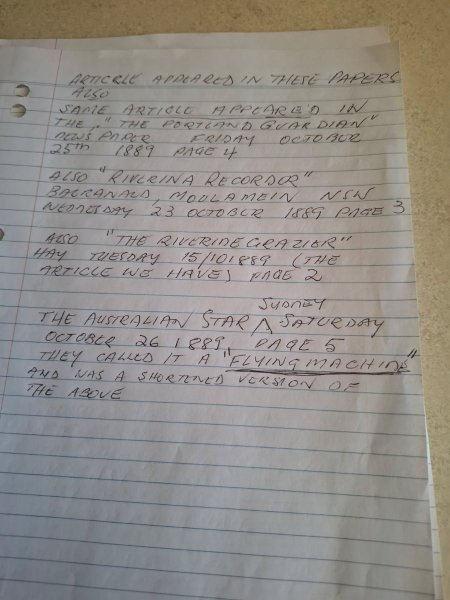 ARTICRLE APPEARED IN THESE PAPERS
ALSO
SAME ARTICLE APPEARE'D IN
THE, "THE PORTLAND GUARDIAN"
NEWS PAPER FRIDAY OCTOBER
25TH 1889 PAGE 4
ALSO "RIVERINA RECORDER"
BALRANALD, MOULAMEIN NSW
WEDNESDAY 23 OCTOBER 1889 PAGE 3
ALSO "THE RIVERINE GRAZIER"
HAY TUESDAY 15/10/1889 (THE
ARTICLE WE HAVE) PAGE 2
SYDNEY
THE AUSTRALIAN STAR ^ SATURDAY
OCTOBER 26 1889, PAGE 5
THEY CALLED IT A "FLYING MACHINE"
AND WAS A SHORTENED VERSION OF
THE ABOVE